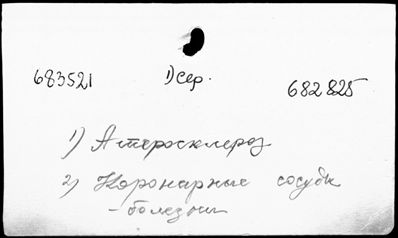 683521 1) сер. 682825
1) Атеросклероз
2) Коронарные сосуды
- болезни